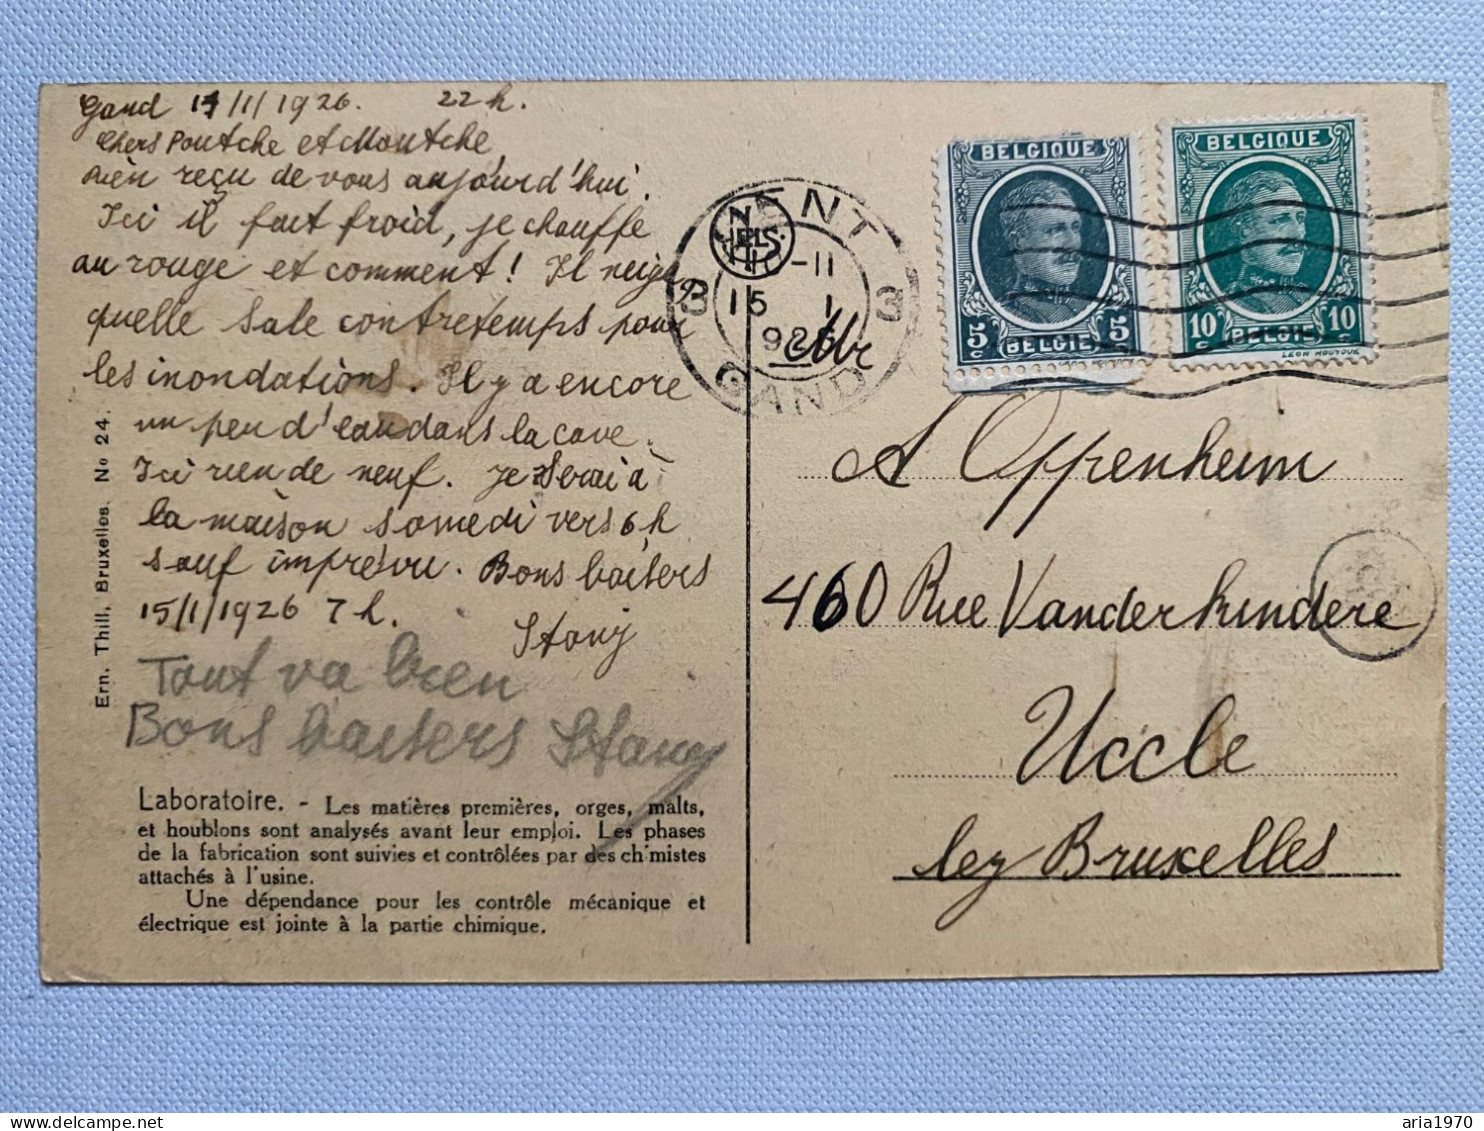 Gand 14/1/1926. 22 h.
Chers Poutche et Moutche
Rien reçu de vous aujourd'hui.
Ici il fait froid, je chauffe
au rouge et comment! Il neige
quelle sale contretemps pour
les inondations. Il y a encore
un peu d'eau dans la cave.
Ici rien de neuf. Je serai à
la maison samedi vers 6 h
sauf imprévu. Bons baisers
15/1/1926 7 h.
Stany
Tout va bien
Bons baisers Stany
Laboratoire. - Les matières premières, orges, malts,
et houblons sont analysés avant leur emploi. Les phases
de la fabrication sont suivies et contrôlées par des chimistes
attachés à l'usine.
Une dépendance pour les contrôle mécanique et
électrique est jointe à la partie chimique.
Ern. Thill, Bruxelles. No 24.
GENT
3 3
10-11
15 1
1926
GAND
BELGIQUE
5 c 5 c
BELGIE
BELGIQUE
10 c 10 c
BELGIE
LEON HOUYOUX
Mr
A Oppenheim
460 Rue Vanderkindere
Uccle
lez Bruxelles
aria1970